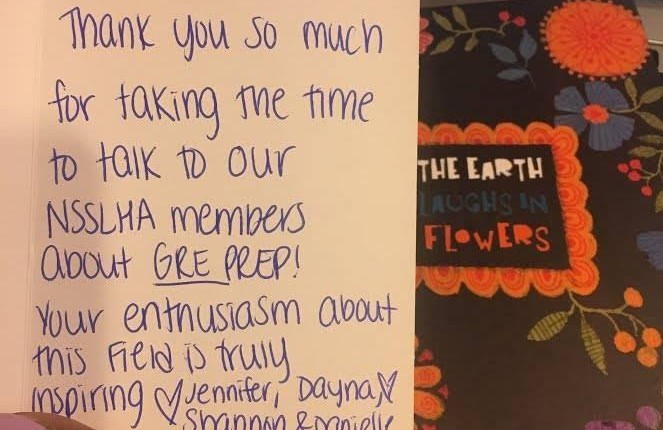 Thank you so much
for taking the time
to talk to our
NSSLHA members
about GRE PREP!
Your enthusiasm about
this field is truly
inspiring ♡ Jennifer, Dayna, ♡
Shannon & Danielle
THE EARTH
LAUGHS IN
FLOWERS